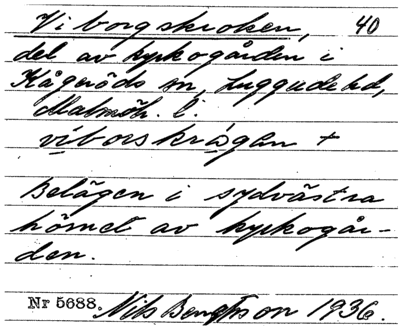 Viborgskroken, 40
del av kyrkogården i
Kågeröds sn, Luggude hd,
Malmöh. l.
viborskrågen +
Belägen i sydvästra
hörnet av kyrkogår-
den.
Nr 5688. Nils Bengtsson 1936.